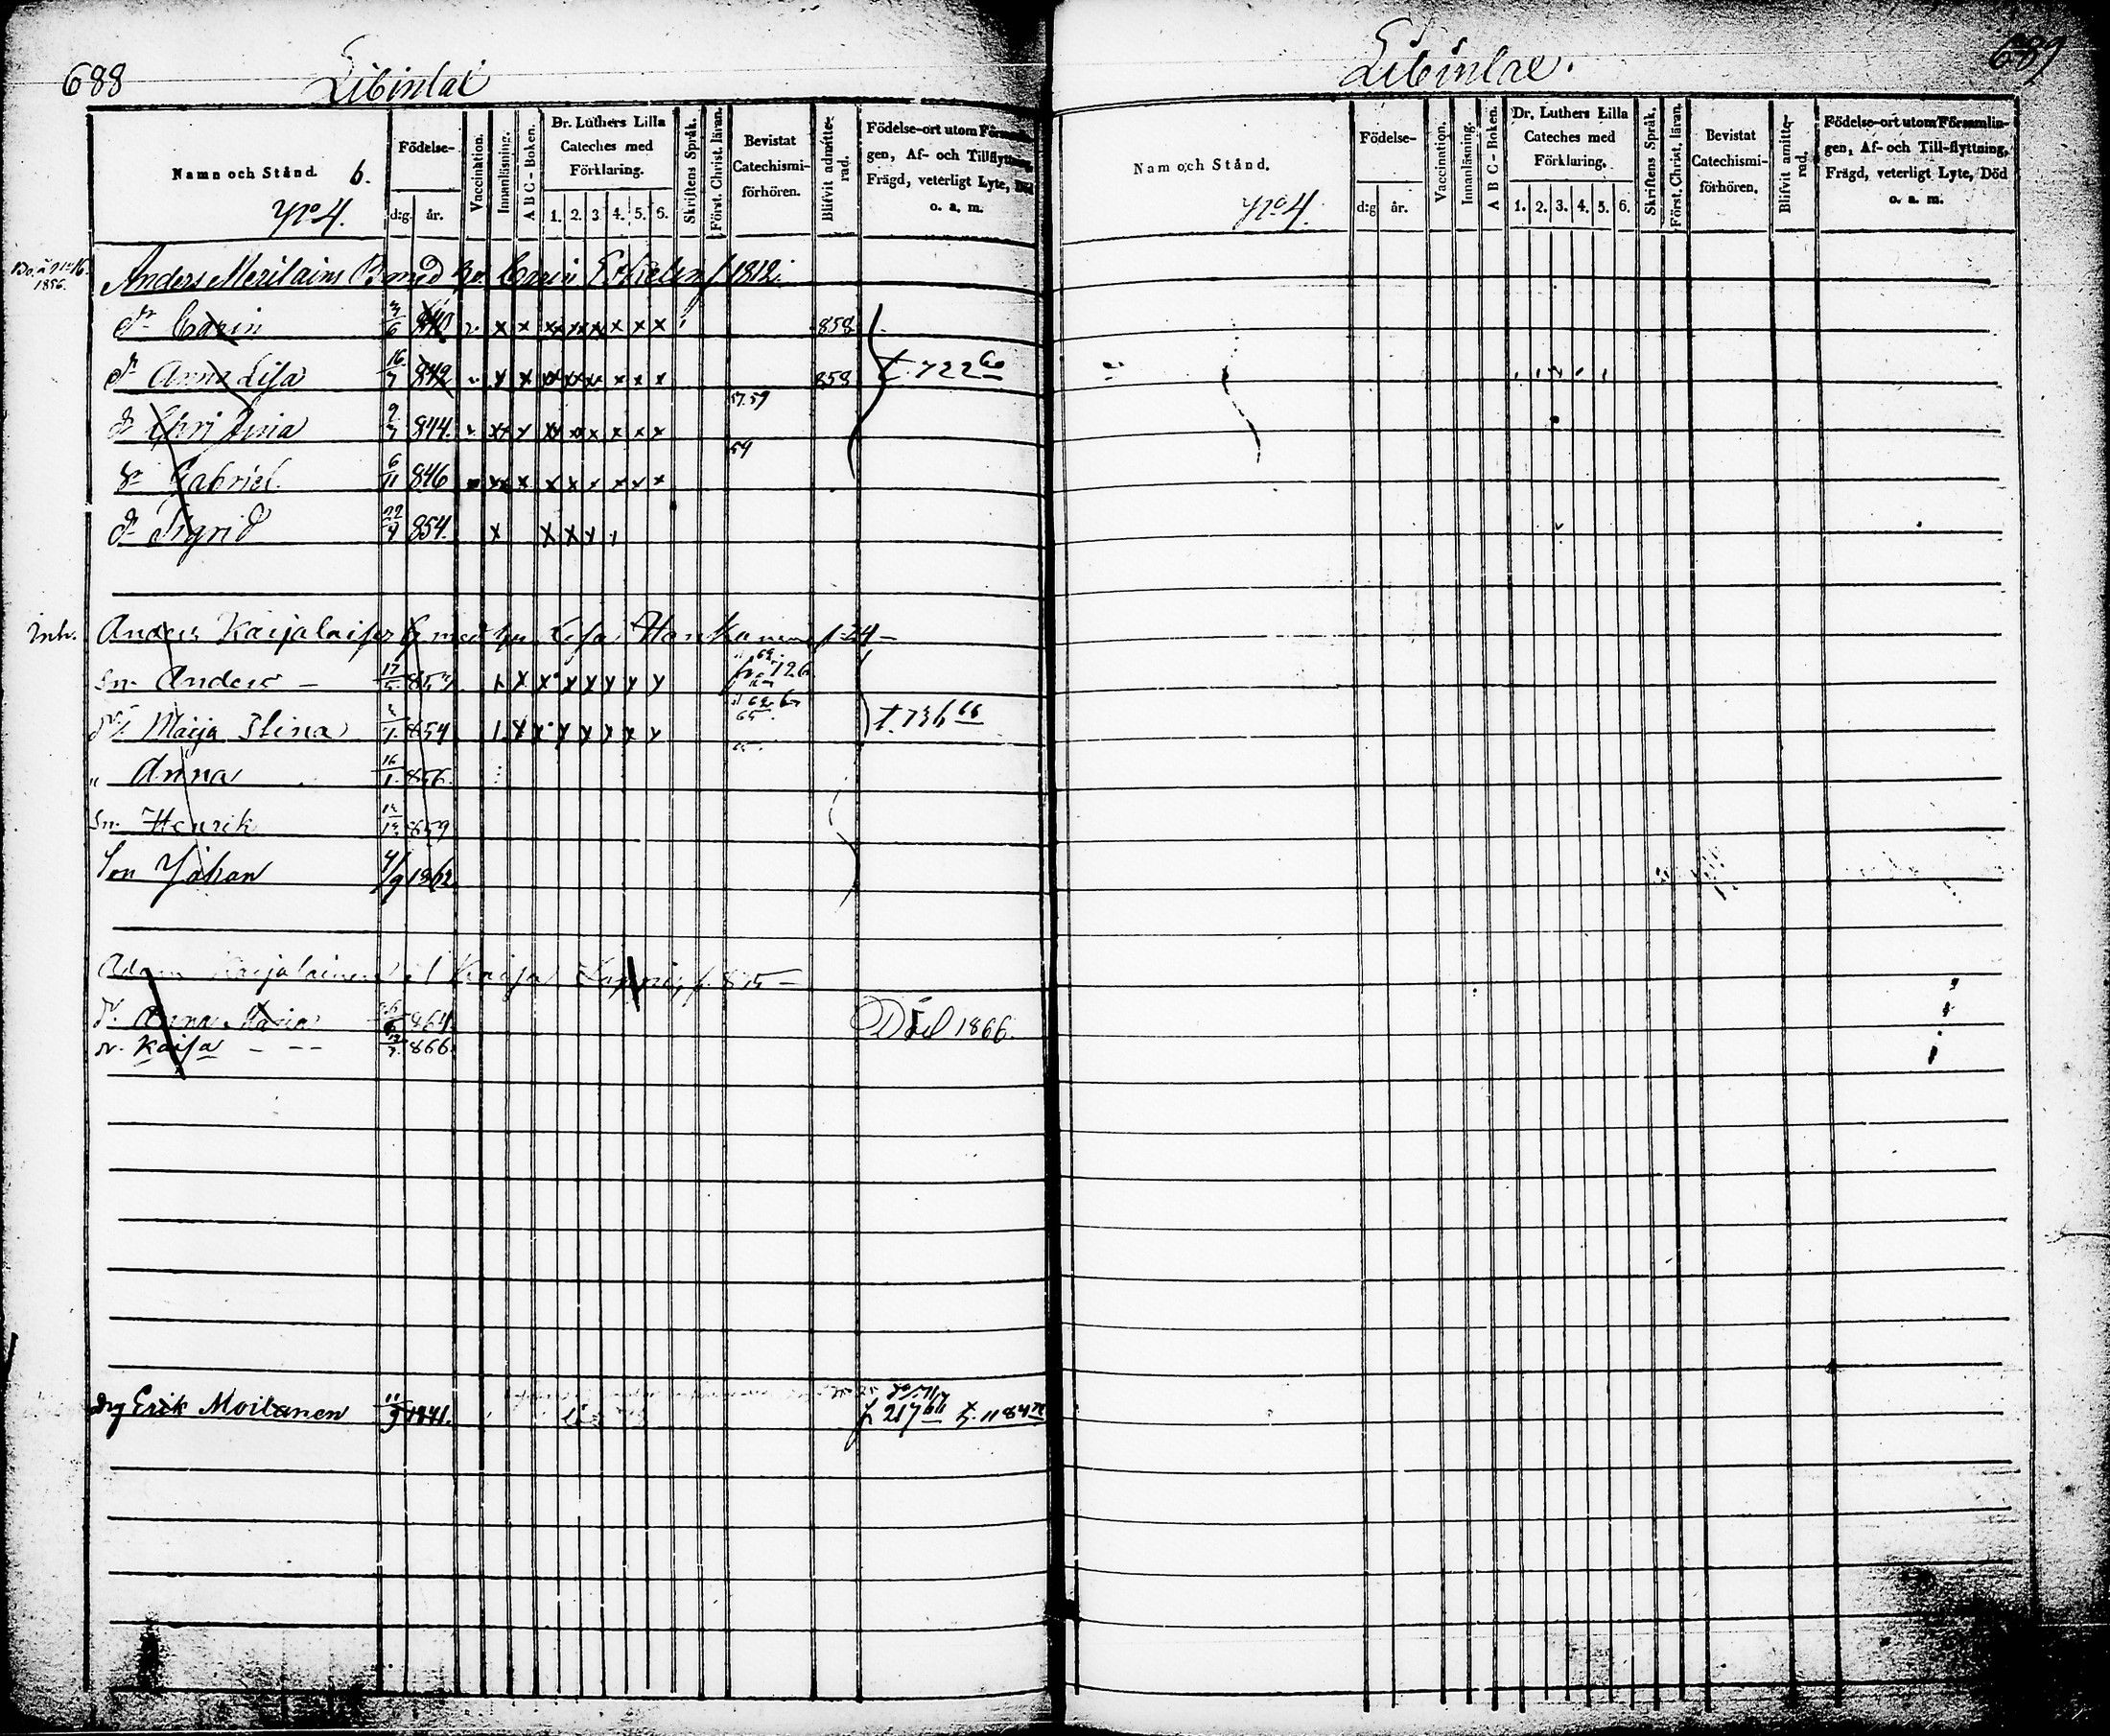 688
Libinlai
Namn och Stånd. 6.
No 4.
Födelse-
d:g år.
Vaccination.
Innanläsning.
A B C - Boken.
Dr. Luthers Lilla Cateches med Förklaring.
1. 2. 3 4. 5. 6.
Skriftens Språk.
Först. Christ. läran.
Bevistat Catechismi-förhören.
Blifvit admitte-rad.
Födelse-ort utom Försam gen, Af- och Tillflyttning, Frägd, veterligt Lyte, Död o. a. m.
1856.
Anders Meriläins B med hu Carin f 1812.
dr Carin 3/6 840 x x x x x x x x 858
dr Anna Lisa 16/7 842 x x x x x x x x 858 t. 722 60
57.59
dr Christina 9/7 844. x x x x x x x
59
Gabriel 6/11 846 x x x x x x x x
dr Sigrid 22/4 854. x x x x
Inh.
Anders Karjalainen med hu Lisa Hankanen f 24
Sn. Anders 17 853 x x x x x x x 126
dr. Maija Stina 854 x x x x x x x t. 736 66
" Anna 16/1 856.
Sn. Henrik 859
Son Johan 4/9 1862
Adam Karjalainen Kaisa
dr. Anna Maria 864 Död 1866.
dr. Kaisa 866.
drg Erik Moilanen 11/9 1841. f 217 66 t. 1184
689
Libinlai.
Nam och Stånd.
No 4.
Födelse-
d:g år.
Vaccination.
Innanläsning.
A B C - Boken.
Dr. Luthers Lilla Cateches med Förklaring.
1. 2. 3. 4. 5. 6.
Skriftens Språk.
Först. Christ. läran.
Bevistat Catechismi-förhören.
Blifvit amitte-rad.
Födelse-ort utom Församlin-gen, Af- och Till-flyttning, Frägd, veterligt Lyte, Död o. a. m.